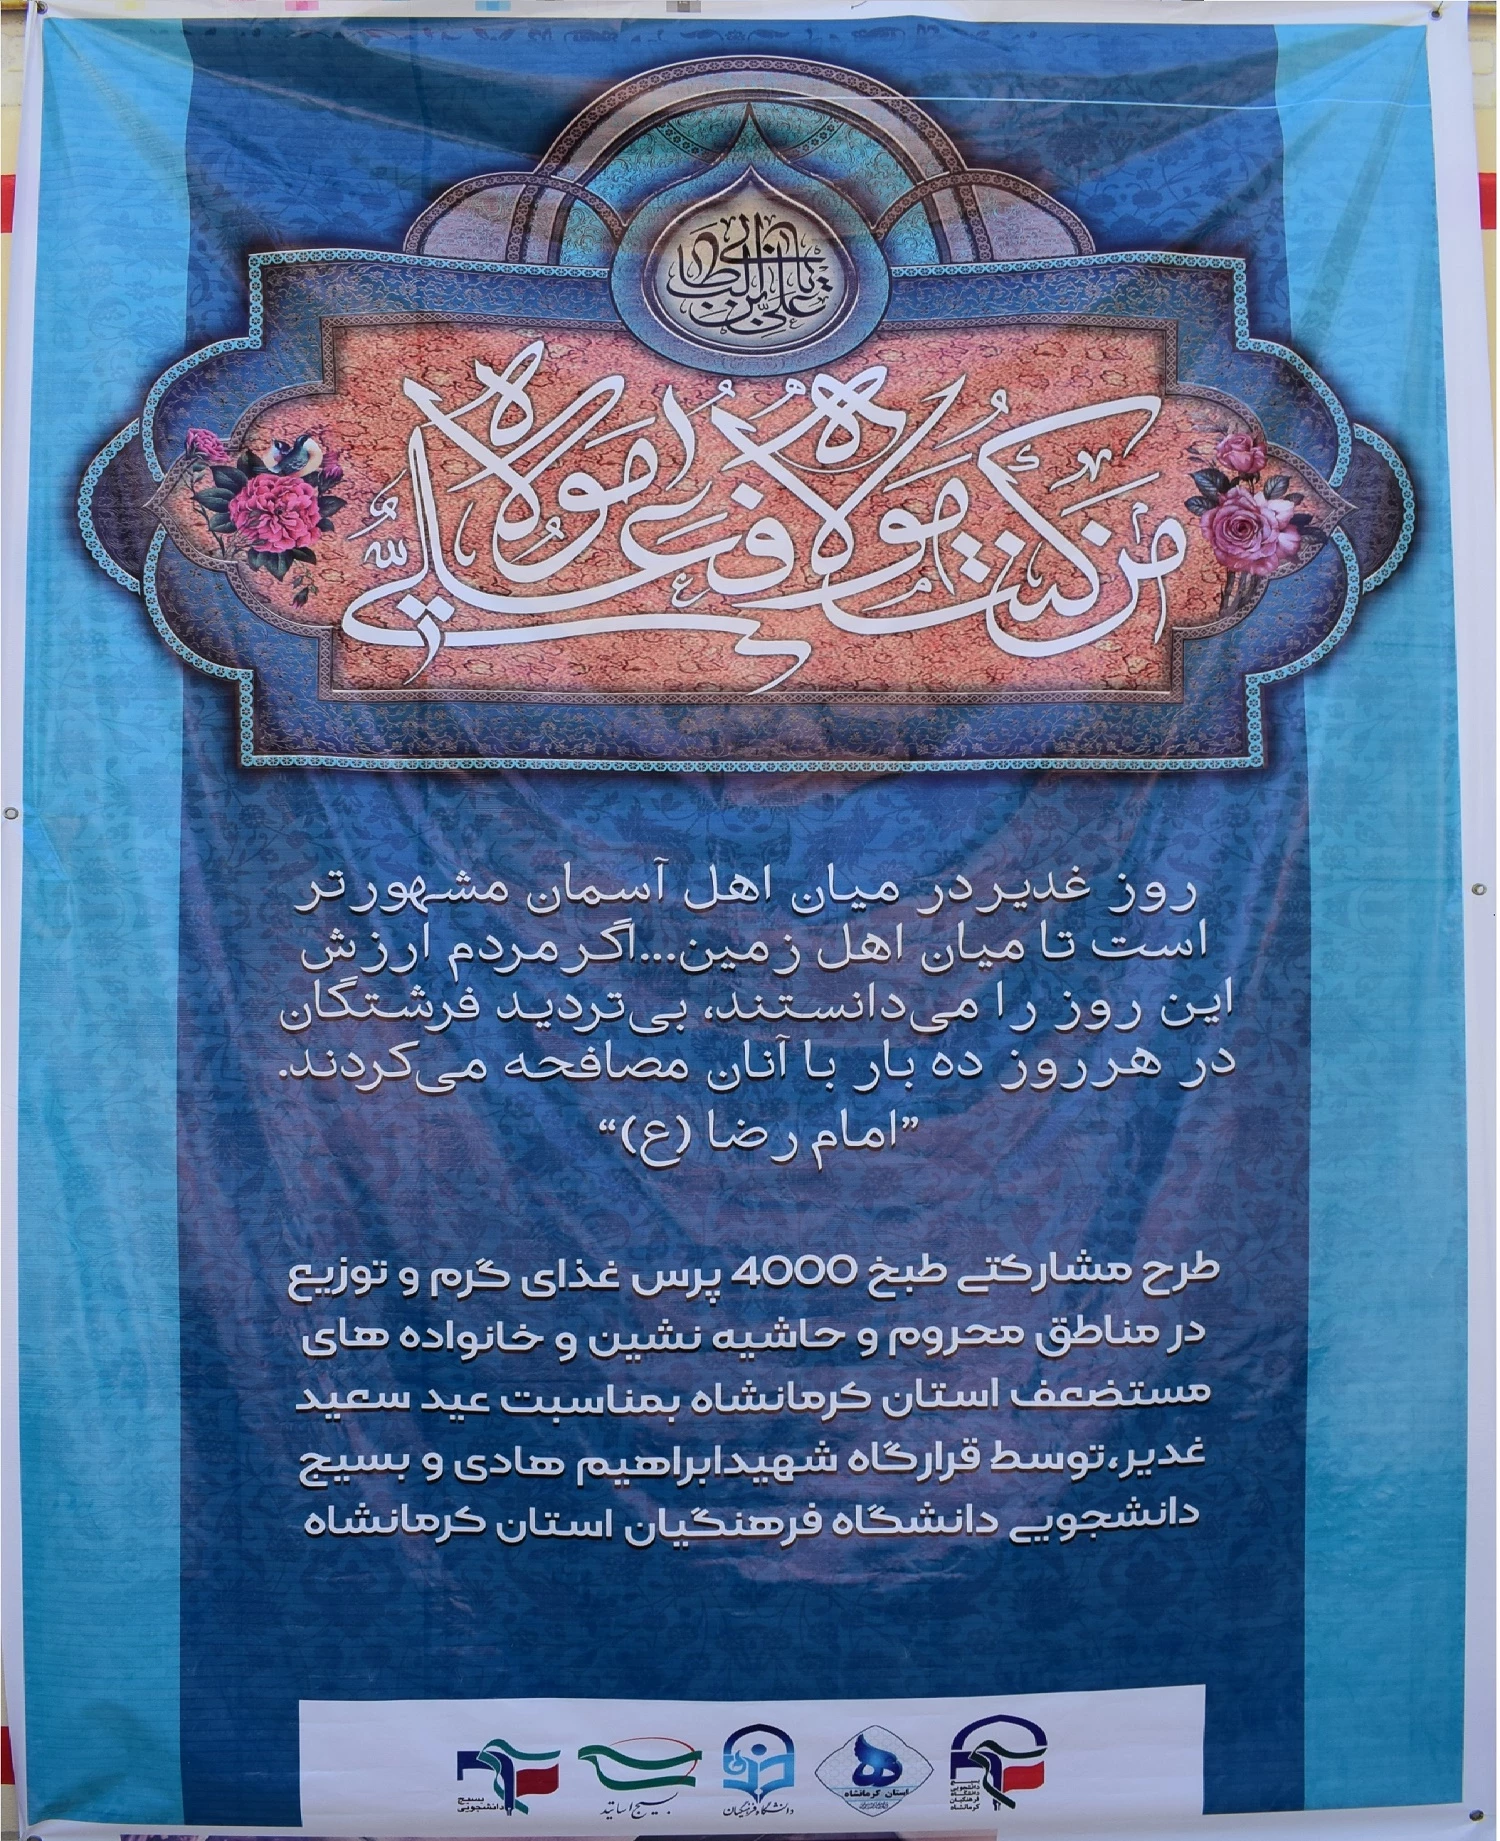 یا علی بن ابی طالب
من کنت مولاه فهذا علی مولاه
روز غدیر در میان اهل آسمان مشهورتر
است تا میان اهل زمین...اگر مردم ارزش
این روز را می‌دانستند، بی‌تردید فرشتگان
در هر روز ده بار با آنان مصافحه می‌کردند.
”امام رضا (ع)“
طرح مشارکتی طبخ 4000 پرس غذای گرم و توزیع
در مناطق محروم و حاشیه نشین و خانواده های
مستضعف استان کرمانشاه بمناسبت عید سعید
غدیر،توسط قرارگاه شهیدابراهیم هادی و بسیج
دانشجویی دانشگاه فرهنگیان استان کرمانشاه
بسیج
دانشجویی
دانشگاه
فرهنگیان
کرمانشاه
استان کرمانشاه
دانشگاه فرهنگیان
بسیج اساتید
بسیج
دانشجویی